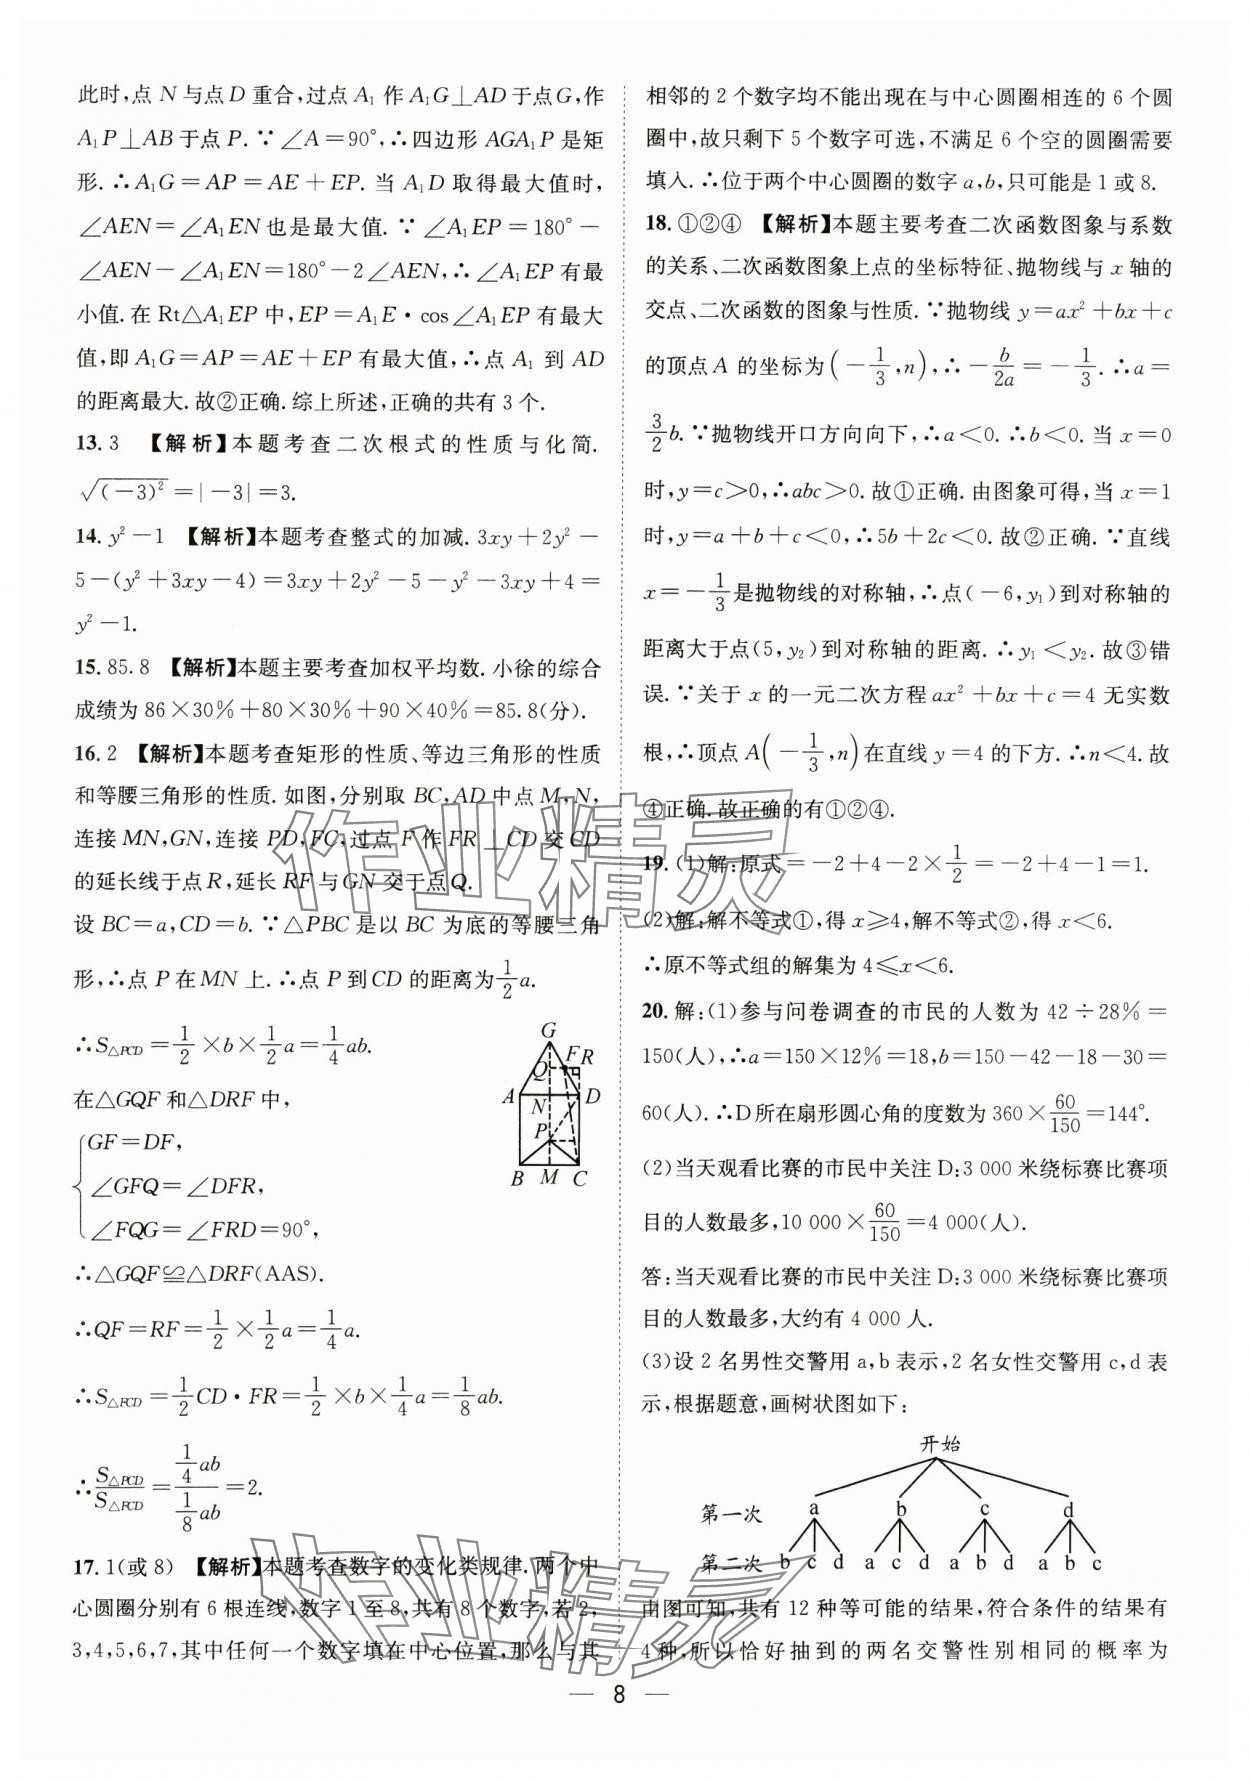 此时,点 N 与点 D 重合,过点 A₁ 作 A₁G⊥AD 于点 G,作
A₁P⊥AB 于点 P.∵∠A=90°,∴四边形 AGA₁P 是矩
形.∴A₁G=AP=AE+EP.当 A₁D 取得最大值时,
∠AEN=∠A₁EN 也是最大值.∵∠A₁EP=180°-
∠AEN-∠A₁EN=180°-2∠AEN,∴∠A₁EP 有最
小值.在 Rt△A₁EP 中,EP=A₁E·cos∠A₁EP 有最大
值,即 A₁G=AP=AE+EP 有最大值,∴点 A₁ 到 AD
的距离最大.故②正确.综上所述,正确的共有 3 个.
13. 3 【解析】本题考查二次根式的性质与化简.
√(-3)²=|-3|=3.
14. y²-1 【解析】本题考查整式的加减.3xy+2y²-
5-(y²+3xy-4)=3xy+2y²-5-y²-3xy+4=
y²-1.
15. 85.8 【解析】本题主要考查加权平均数.小徐的综合
成绩为 86×30%+80×30%+90×40%=85.8(分).
16. 2 【解析】本题考查矩形的性质、等边三角形的性质
和等腰三角形的性质.如图,分别取 BC,AD 中点 M,N,
连接 MN,GN,连接 PD,FC,过点 F 作 FR⊥CD 交 CD
的延长线于点 R,延长 RF 与 GN 交于点 Q.
设 BC=a,CD=b.∵△PBC 是以 BC 为底的等腰三角
形,∴点 P 在 MN 上.∴点 P 到 CD 的距离为 1/2 a.
∴S△PCD=1/2×b×1/2 a=1/4 ab.
在△GQF 和△DRF 中,
GF=DF,
∠GFQ=∠DFR,
∠FQG=∠FRD=90°,
∴△GQF≌△DRF(AAS).
∴QF=RF=1/2×1/2 a=1/4 a.
∴S△FCD=1/2 CD·FR=1/2×b×1/4 a=1/8 ab.
∴S△PCD/S△FCD=(1/4 ab)/(1/8 ab)=2.
G
F R
Q
A N D
P
B M C
17. 1(或 8) 【解析】本题考查数字的变化类规律.两个中
心圆圈分别有 6 根连线,数字 1 至 8,共有 8 个数字,若 2,
3,4,5,6,7,其中任何一个数字填在中心位置,那么与其
相邻的 2 个数字均不能出现在与中心圆圈相连的 6 个圆
圈中,故只剩下 5 个数字可选,不满足 6 个空的圆圈需要
填入.∴位于两个中心圆圈的数字 a,b,只可能是 1 或 8.
18. ①②④ 【解析】本题主要考查二次函数图象与系数
的关系、二次函数图象上点的坐标特征、抛物线与 x 轴的
交点、二次函数的图象与性质.∵抛物线 y=ax²+bx+c
的顶点 A 的坐标为(-1/3,n),∴-b/2a=-1/3.∴a=
3/2 b.∵抛物线开口方向向下,∴a<0.∴b<0.当 x=0
时,y=c>0,∴abc>0.故①正确.由图象可得,当 x=1
时,y=a+b+c<0,∴5b+2c<0.故②正确.∵直线
x=-1/3 是抛物线的对称轴,∴点(-6,y₁)到对称轴的
距离大于点(5,y₂)到对称轴的距离.∴y₁<y₂.故③错
误.∵关于 x 的一元二次方程 ax²+bx+c=4 无实数
根,∴顶点 A(-1/3,n)在直线 y=4 的下方.∴n<4.故
④正确.故正确的有①②④.
19. (1)解:原式=-2+4-2×1/2=-2+4-1=1.
(2)解:解不等式①,得 x≥4,解不等式②,得 x<6.
∴原不等式组的解集为 4≤x<6.
20. 解:(1)参与问卷调查的市民的人数为 42÷28%=
150(人),∴a=150×12%=18,b=150-42-18-30=
60(人).∴D 所在扇形圆心角的度数为 360×60/150=144°.
(2)当天观看比赛的市民中关注 D:3 000 米绕标赛比赛项
目的人数最多,10 000×60/150=4 000(人).
答:当天观看比赛的市民中关注 D:3 000 米绕标赛比赛项
目的人数最多,大约有 4 000 人.
(3)设 2 名男性交警用 a,b 表示,2 名女性交警用 c,d 表
示,根据题意,画树状图如下:
开始
第一次 a b c d
第二次 b c d a c d a b d a b c
由图可知,共有 12 种等可能的结果,符合条件的结果有
4 种,所以恰好抽到的两名交警性别相同的概率为
— 8 —
作业精灵
作业精灵